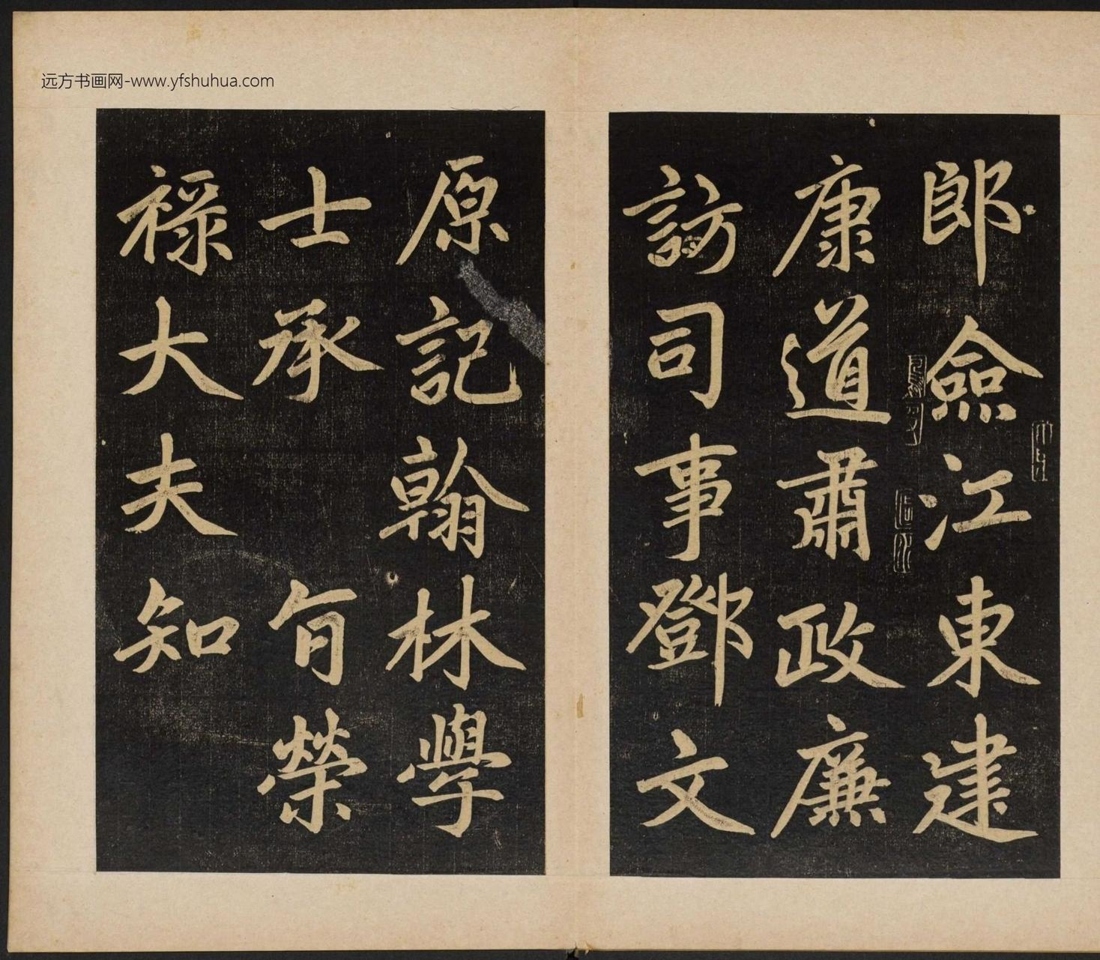 远方书画网-www.yfshuhua.com
郎僉江東建
康道肅政廉
訪司事鄧文
原記翰林學
士承旨榮
祿大夫知